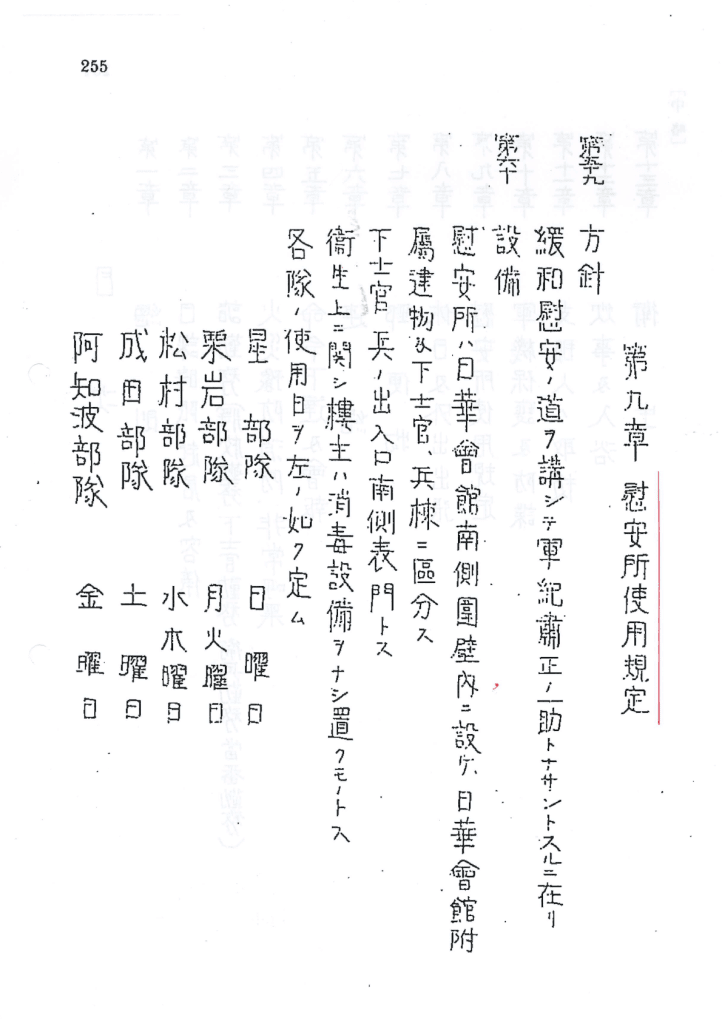 255
第九章 慰安所使用規定
第五十九
方針
緩和慰安ノ道ヲ講シテ軍紀肅正ノ一助トナサントスルニ在リ
第六十
設備
慰安所ハ日華會館南側圍壁内ニ設ケ、日華會館附
屬建物及下士官、兵棟ニ區分ス
下士官、兵ノ出入口南側表門トス
衞生上ニ関シ樓主ハ消毒設備ヲナシ置クモノトス
各隊ノ使用日ヲ左ノ如ク定ム
星 部隊 日 曜日
栗岩部隊 月火曜日
松村部隊 水木曜日
成田部隊 土 曜日
阿知波部隊 金 曜日